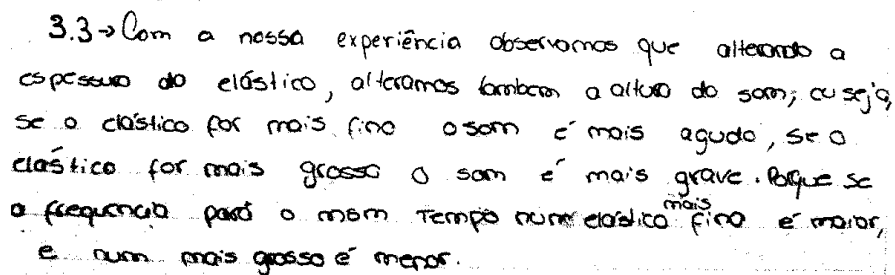 3.3→Com a nossa experiência observamos que alterando a
espessura do elástico, alteramos tambem a altura do som; ou seja,
se o elástico for mais fino o som é mais agudo, se o
elástico for mais grosso o som é mais grave. Porque se
a frequencia para o mesm Tempo num elástico mais fino é maior,
e num mais grosso é menor.